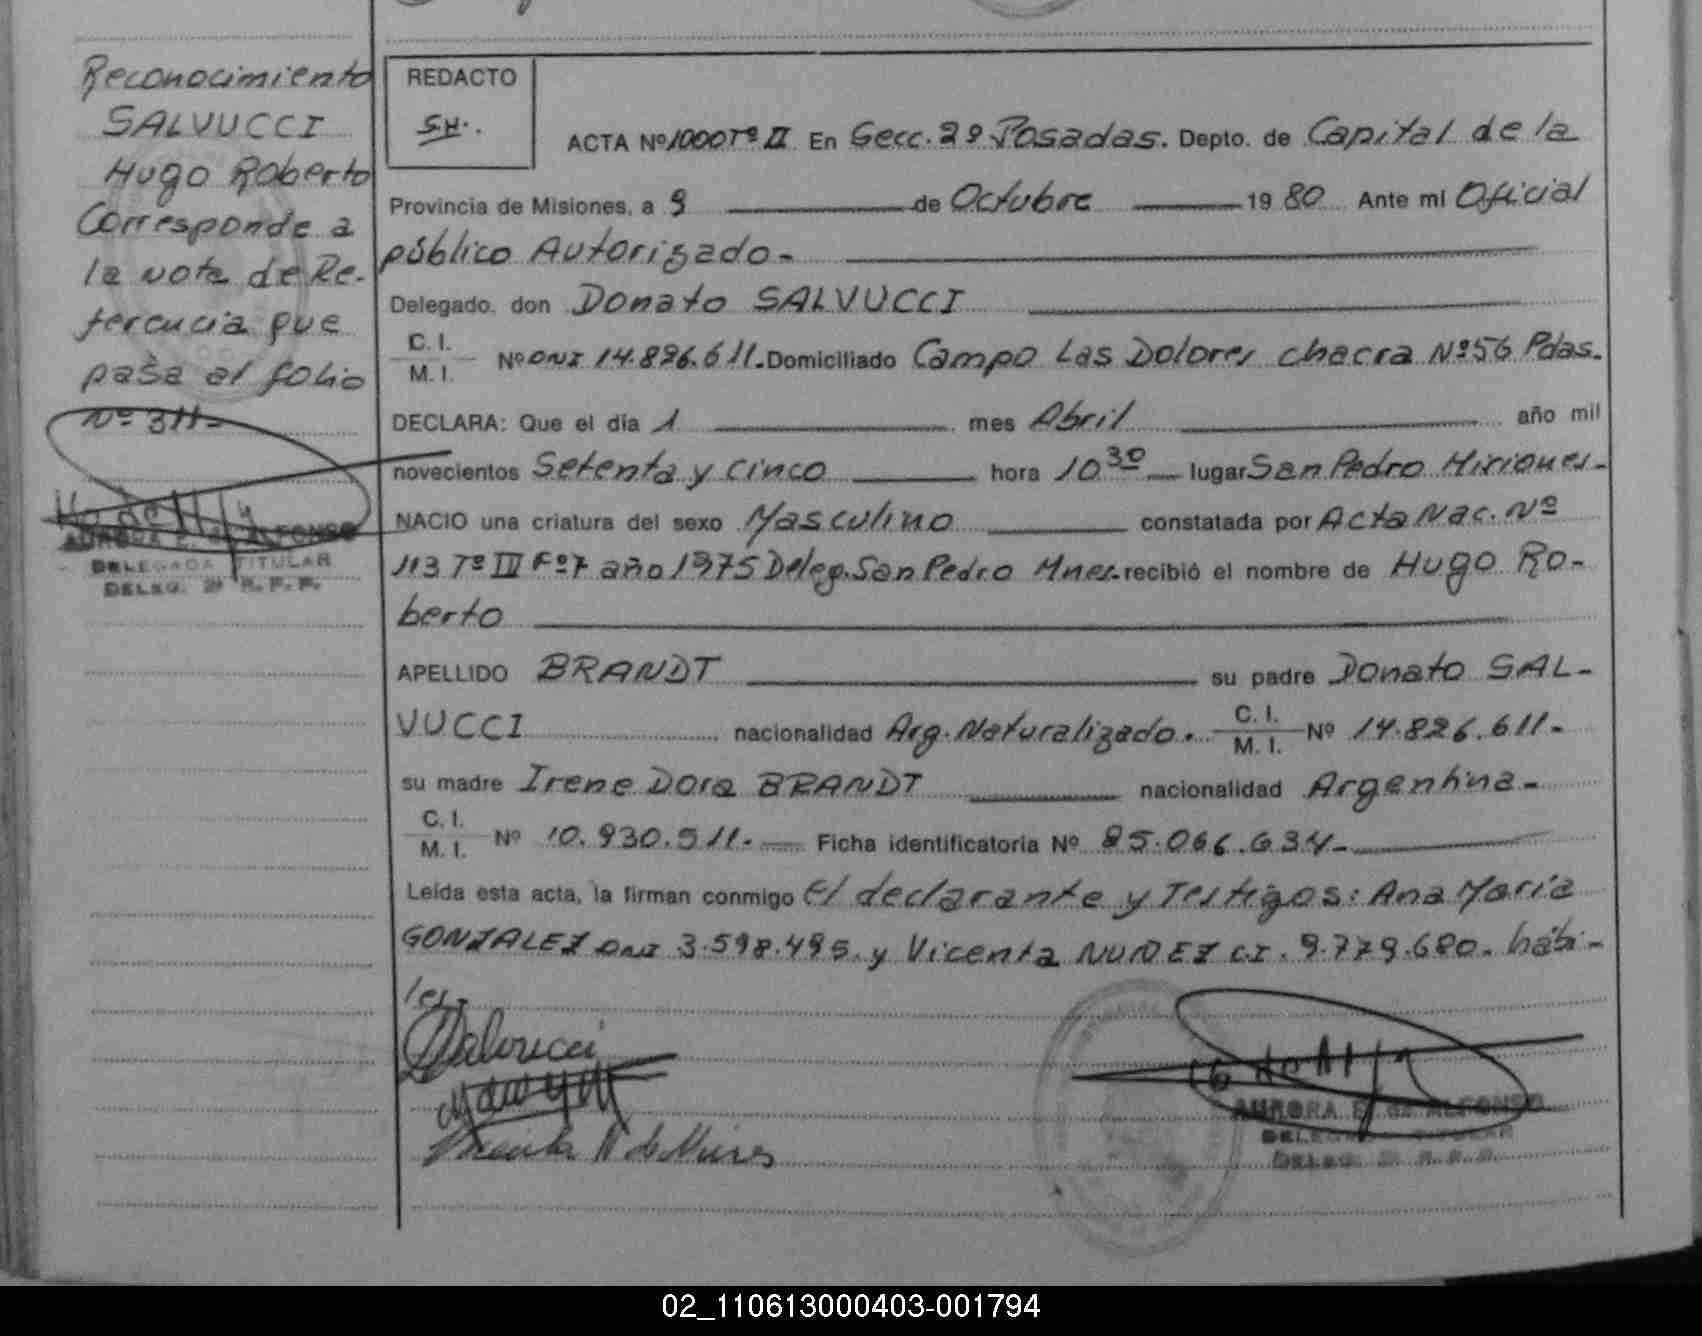 Reconocimiento
SALVUCCI
Hugo Roberto
Corresponde a
la nota de Re-
ferencia que
pasa al folio
Nº 311-
AURORA E. de ALFONSO
DELEGADA TITULAR
DELEG. 2ª R.P.P.
REDACTO
S.H.
ACTA Nº 1000 Tº II En Secc. 2º Posadas. Depto. de Capital de la
Provincia de Misiones, a 9 de Octubre 19 80 Ante mi Oficial
público Autorizado-
Delegado, don Donato SALVUCCI
C. I.
M. I. Nº DNI 14.826.611. Domiciliado Campo Las Dolores chacra Nº 56 Pdas.
DECLARA: Que el día 1 mes Abril año mil
novecientos Setenta y cinco hora 10 30 lugar San Pedro Misiones-
NACIO una criatura del sexo Masculino constatada por Acta Nac. Nº
113 Tº III Fº 7 año 1975 Deleg. San Pedro Mnes. recibió el nombre de Hugo Ro-
berto
APELLIDO BRANDT su padre Donato SAL-
VUCCI nacionalidad Arg. Naturalizado. C. I.
M. I. Nº 14.826.611-
su madre Irene Dora BRANDT nacionalidad Argentina-
C. I.
M. I. Nº 10.930.511.- Ficha identificatoria Nº 85.066.634-
Leída esta acta, la firman conmigo el declarante y Testigos: Ana Maria
GONZALEZ DNI 3.598.495. y Vicenta NUÑEZ C.I. 9.779.680. hábi-
les-
DSalvucci
AURORA E. de ALFONSO
DELEGADA TITULAR
DELEG. 2ª R.P.P.
02_110613000403-001794